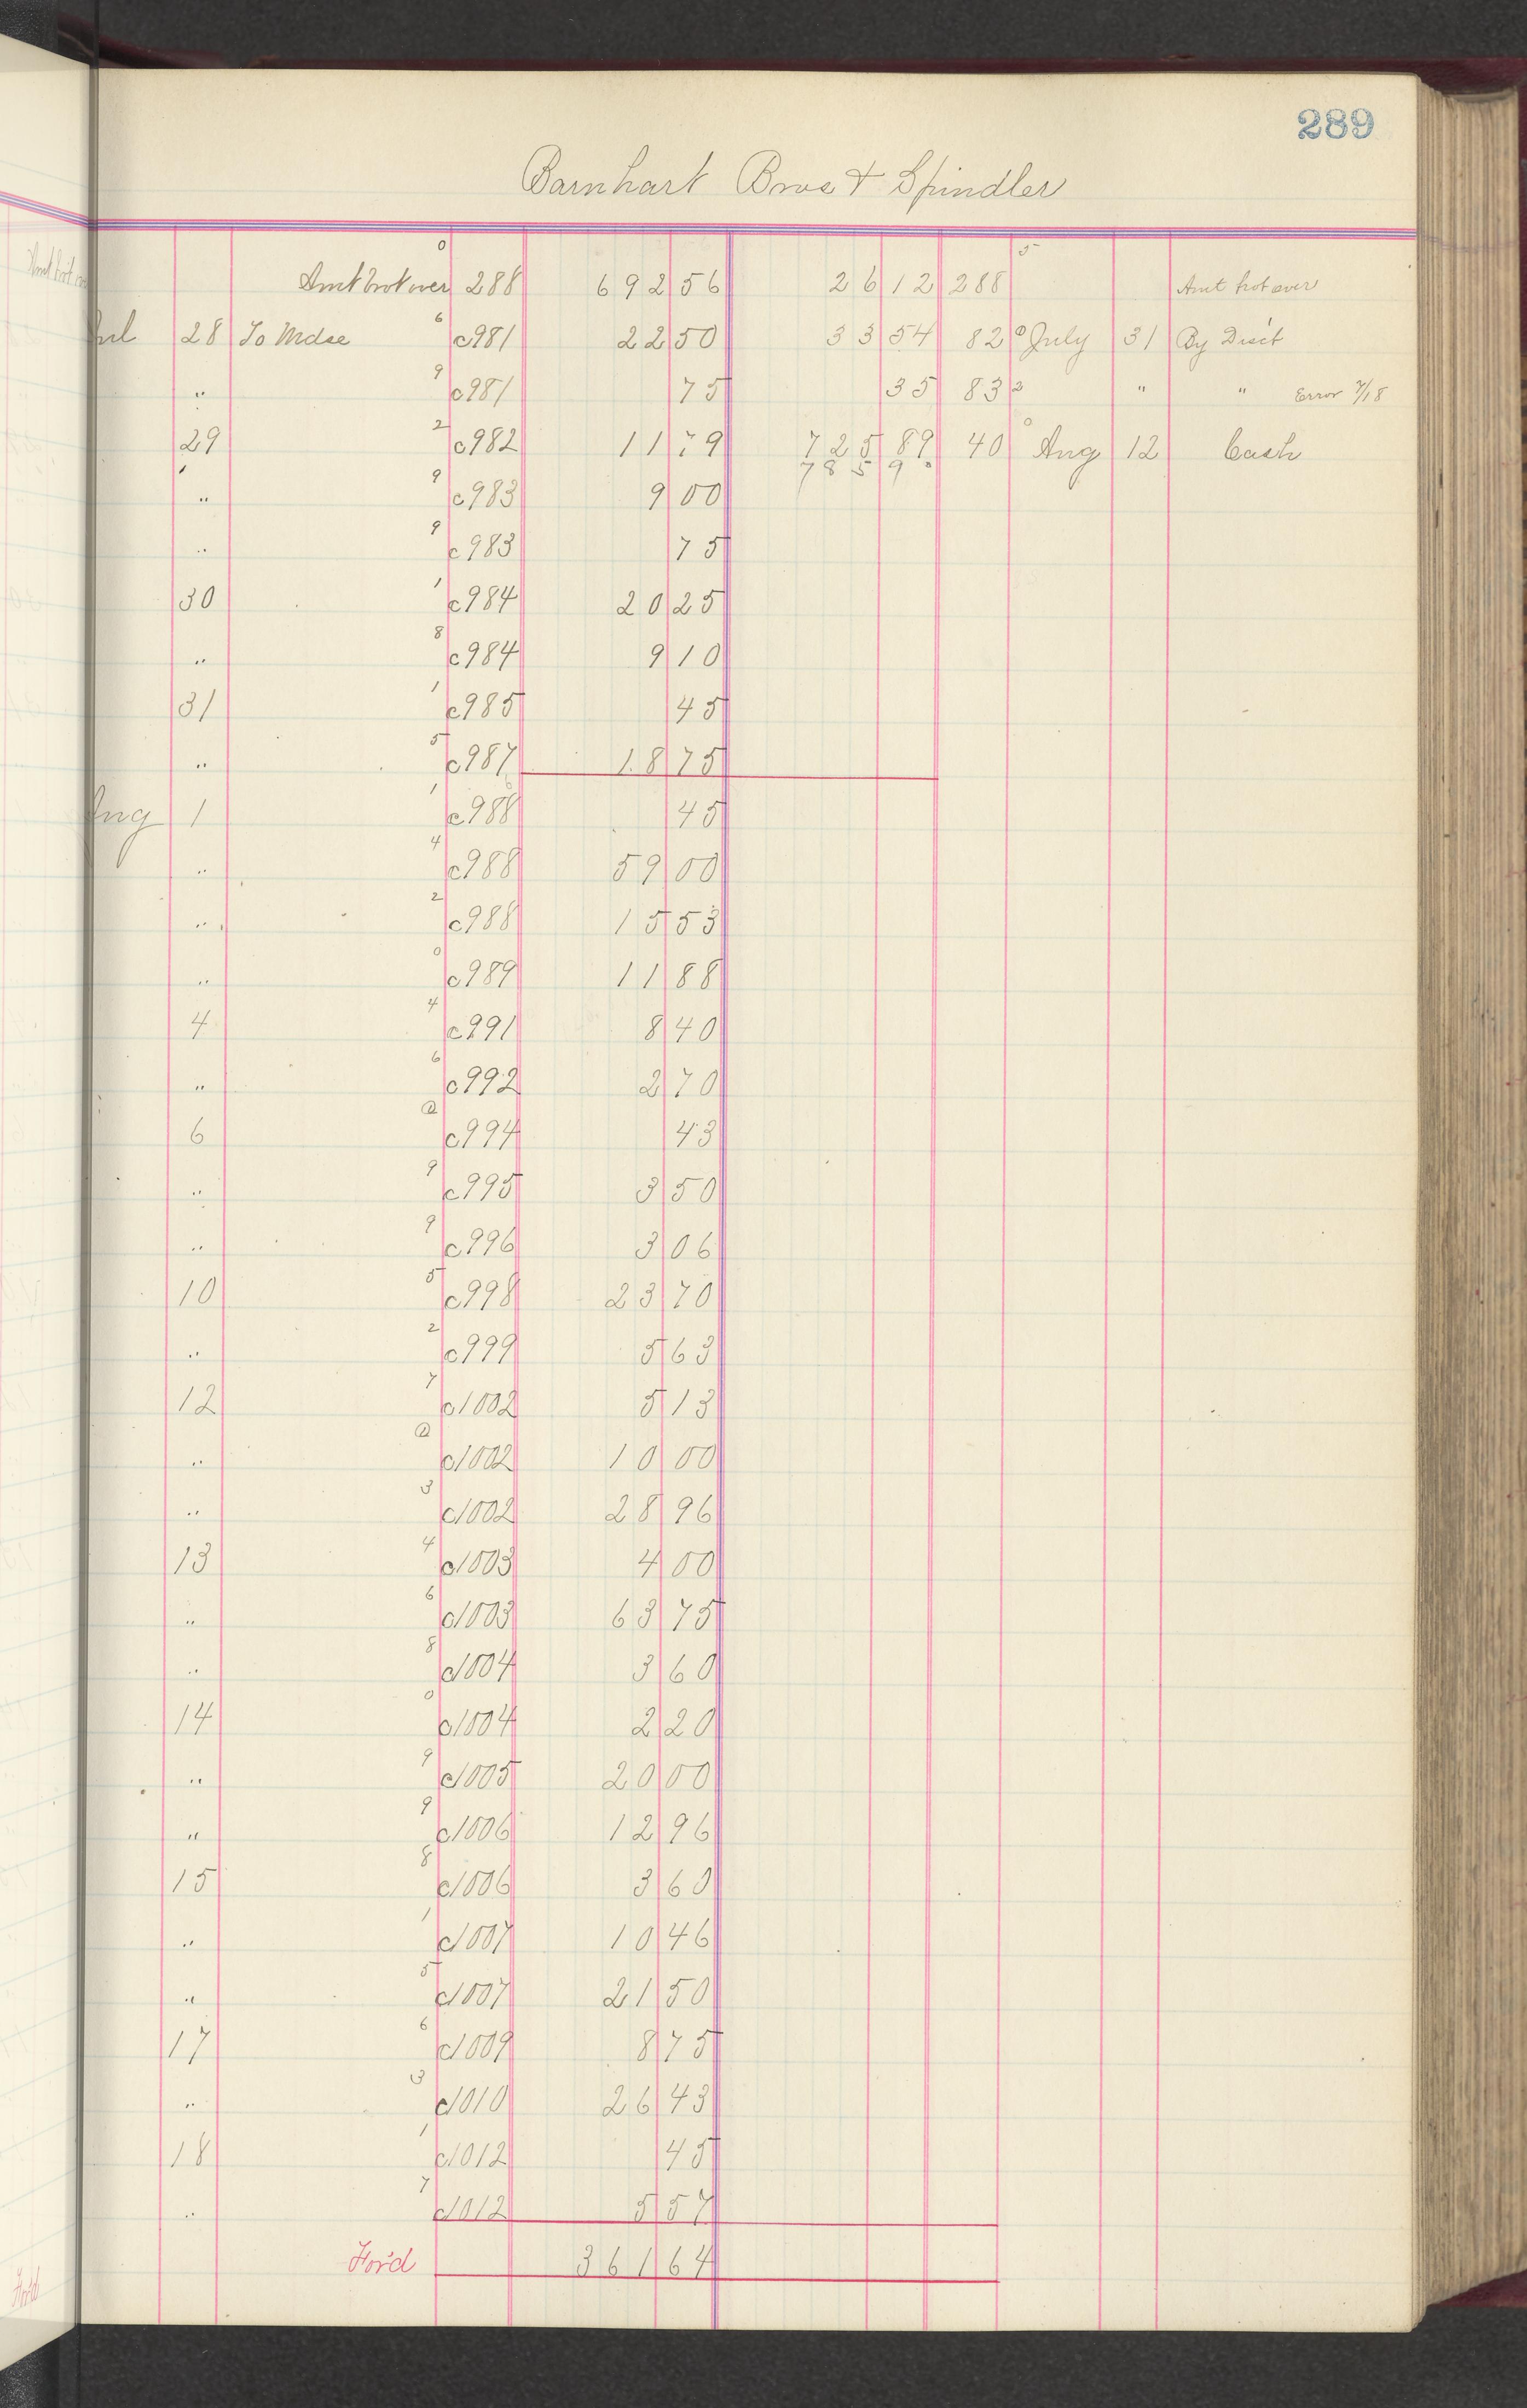 289
Barnhart Bros & Spindler
0 5
Amt brot over 288 692 56 26 12 288 Amt brot over
28 To Mdse 6 c981 22 50 33 54 82 0 July 31 By Disc't
" 9 c981 75 35 83 2 " " Error 7/18
29 2 c982 11 79 725 89 40 0 Aug 12 Cash
785 90
" 9 c983 9 00
" 9 c983 75
30 1 c984 20 25
" 8 c984 9 10
31 1 c985 45
" 5 c987 18 75
Aug 1 1 c988 45
" 4 c988 59 00
" 2 c988 15 53
" 0 c989 11 88
4 4 c991 8 40
" 6 c992 2 70
6 c994 43
" 9 c995 3 50
" 9 c996 3 06
10 5 c998 23 70
" 2 c999 5 63
12 7 c1002 5 13
" c1002 10 00
" 3 c1002 28 96
13 4 c1003 4 00
" 6 c1003 63 75
" 8 c1004 3 60
14 0 c1004 2 20
" 9 c1005 20 00
" 9 c1006 12 96
15 8 c1006 3 60
" 1 c1007 10 46
" 5 c1007 21 50
17 6 c1009 8 75
" 3 c1010 26 43
18 1 c1012 45
" 7 c1012 5 57
For'd 361 64